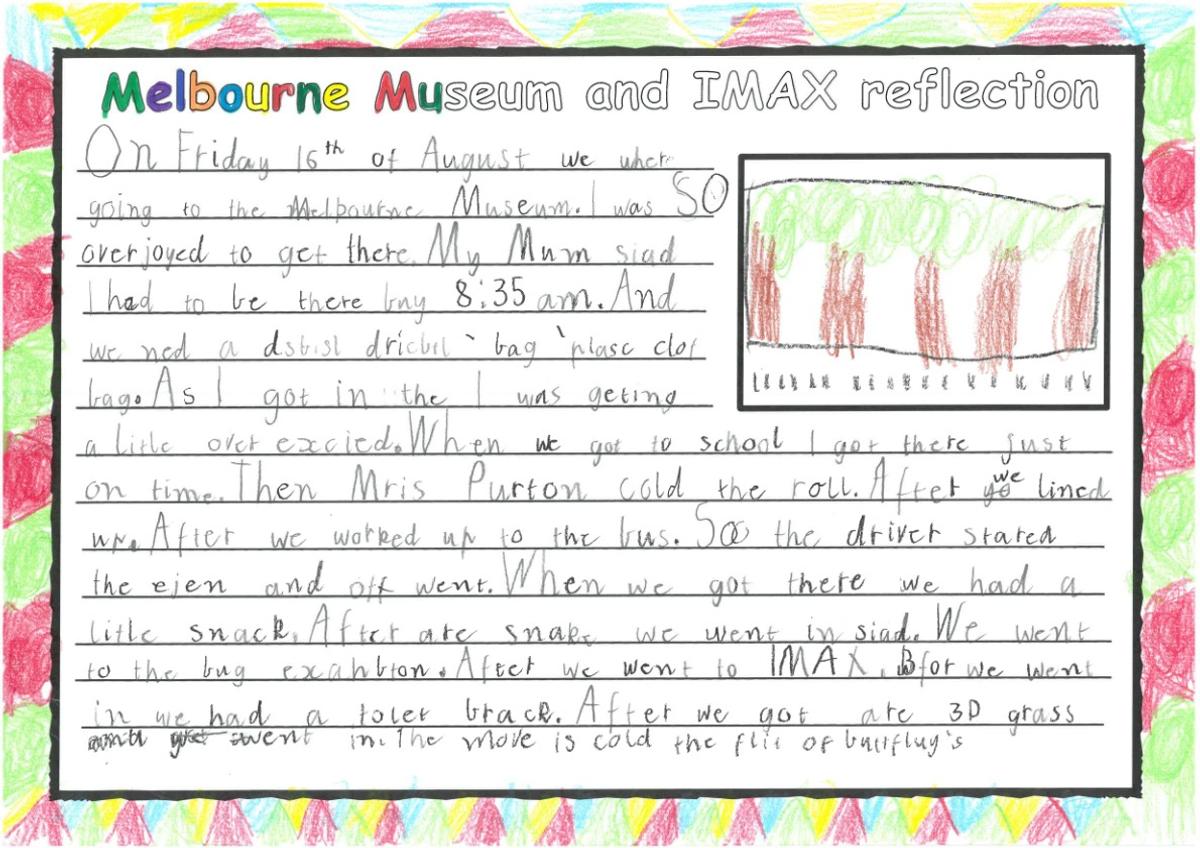 Melbourne Museum and IMAX reflection
On Friday 16th of August we wher
going to the Melbourne Museum. I was SO
overjoyed to get there. My Mum siad
I had to be there buy 8:35 am. And
we ned a dsbisl dricbil ` bag ` plasc clof
bag. As I got in the I was geting
a litle over excied. When we got to school I got there just
on time. Then Mris Purton cold the roll. After we lined
up. After we worked up to the bus. So the driver stared
the ejen and off went. When we got there we had a
litle snack. After are snake we went in siad. We went
to the bug exahbton. After we went to IMAX. Bfor we went
in we had a tolet brack. After we got are 3D grass
went in. The move is cold the flii of buttflug's